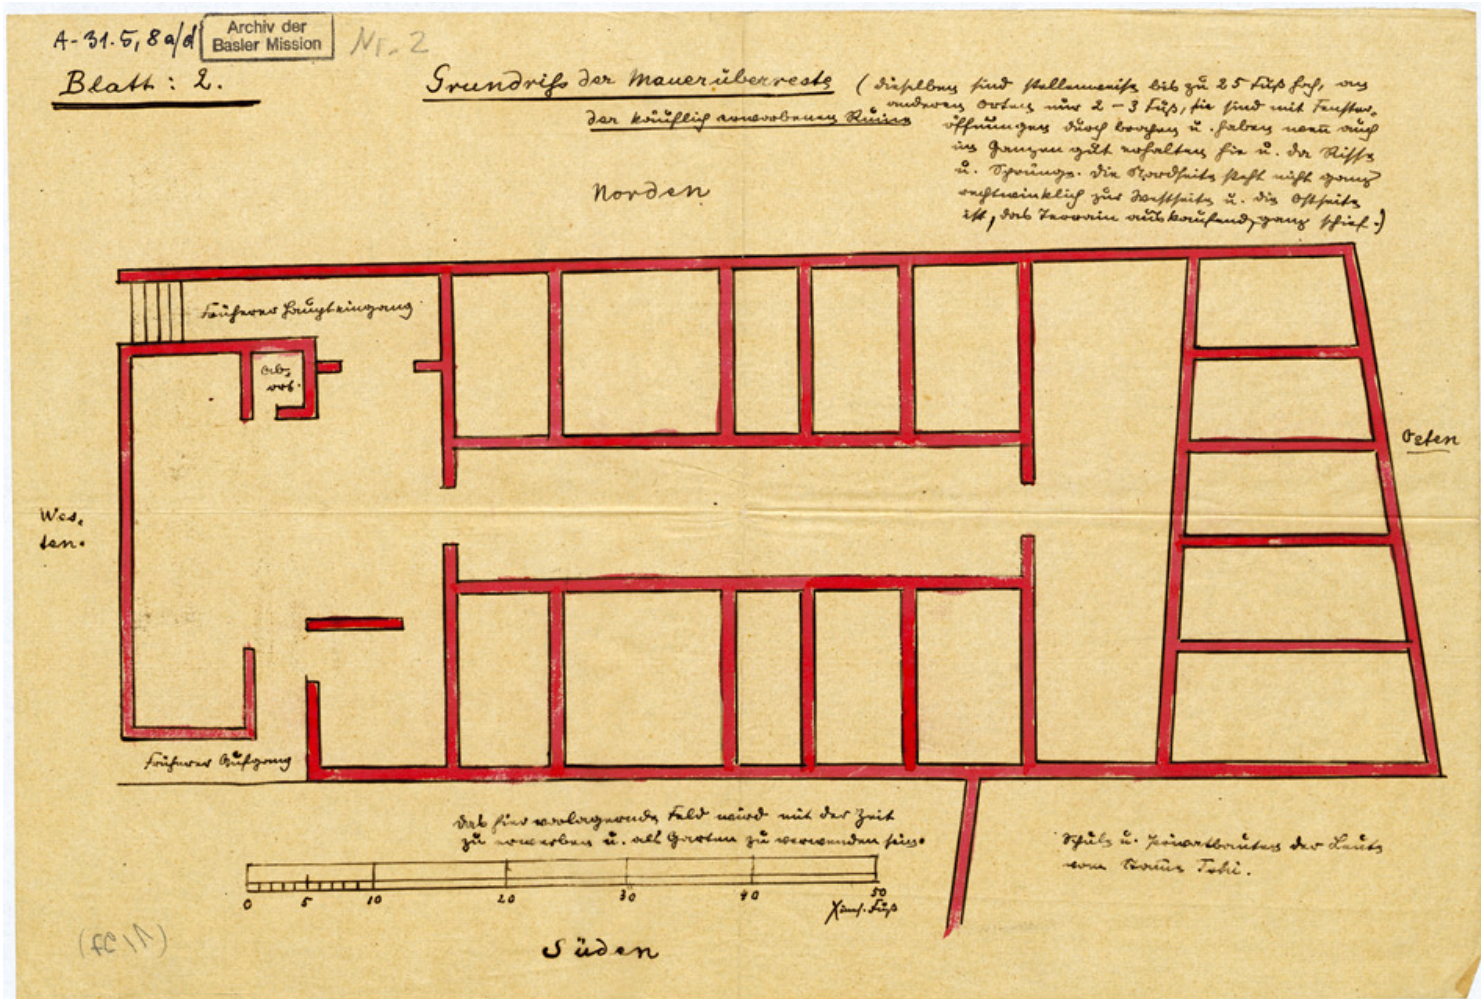 A-31.5,8a/d
Archiv der
Basler Mission
Nr. 2
Blatt: 2.
Grundriß der Mauerüberreste
der käuflich erworbenen Ruine
(dieselben sind stellenweise bis zu 25 Fuß hoch, an
anderen Orten nur 2 - 3 Fuß, sie sind mit Fenster-
öffnungen durchbrochen u. haben wenn auch
im Ganzen gut erhalten hie u. da Risse
u. Sprünge. Die Nordseite steht nicht ganz
rechtwinklich zur Westseite u. die Ostseite
ist, das Terrain auskaufend, ganz schief.)
Norden
Früherer Haupteingang
Ab-
ort.
Osten
Wes-
ten.
Früherer Aufgang
Das hier vorlagernde Feld wird mit der Zeit
zu erwerben u. als Garten zu verwenden sein.
Schule u. Privatbauten der Leute
vom
0 5 10 20 30 40 50
Fuß
Süden